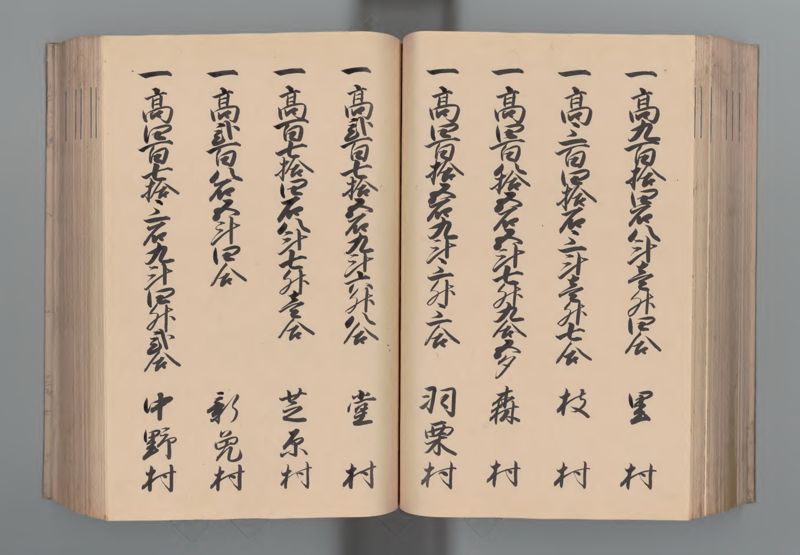 一高九百拾四石八斗壱升四合 里村
一高三百四拾石三斗壱升七合 枝村
一高四百八拾五石五斗七升九合五夕 森村
一高四百拾五石九斗三升三合 羽栗村
一高弐百七拾五石九斗六升八合 堂村
一高百七拾四石八斗七升壱合 芝原村
一高弐百八石五斗四合 新免村
一高四百七拾三石九斗四升弐合 中野村